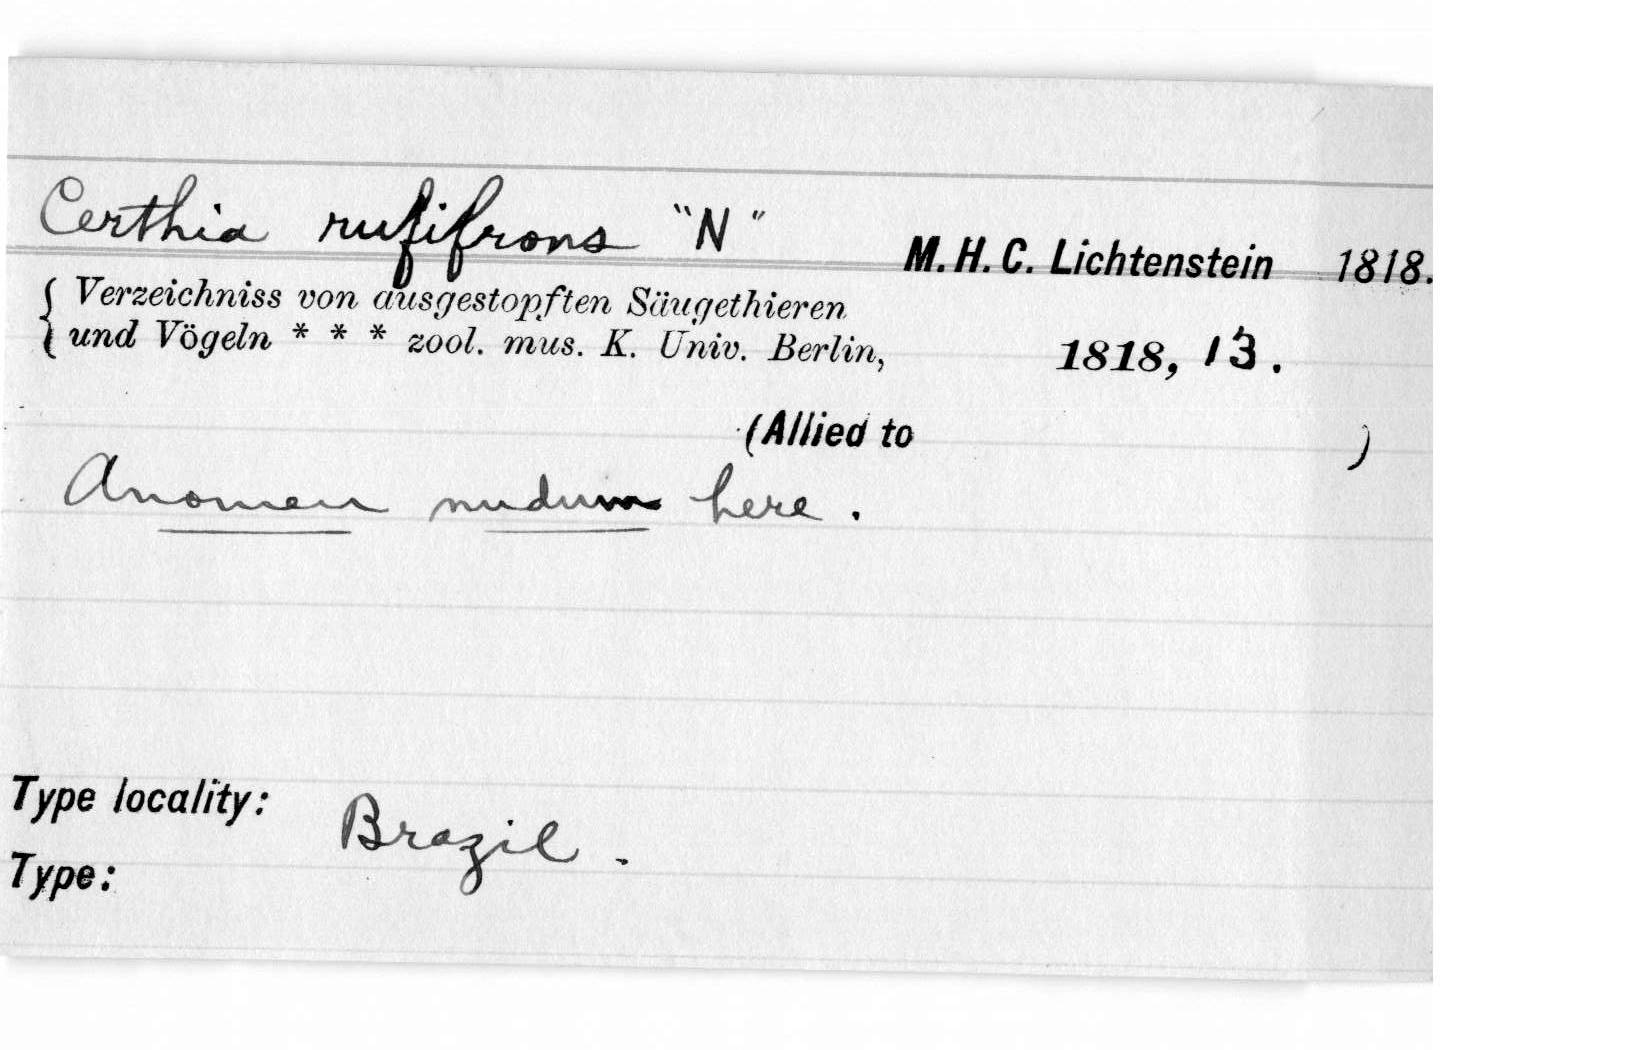 Certhia rufifrons "N" M.H.C. Lichtenstein 1818.
{ Verzeichniss von ausgestopften Säugethieren
und Vögeln * * * zool. mus. K. Univ. Berlin, 1818, 13.
(Allied to )
A nomen nudum here.
Type locality: Brazil.
Type: